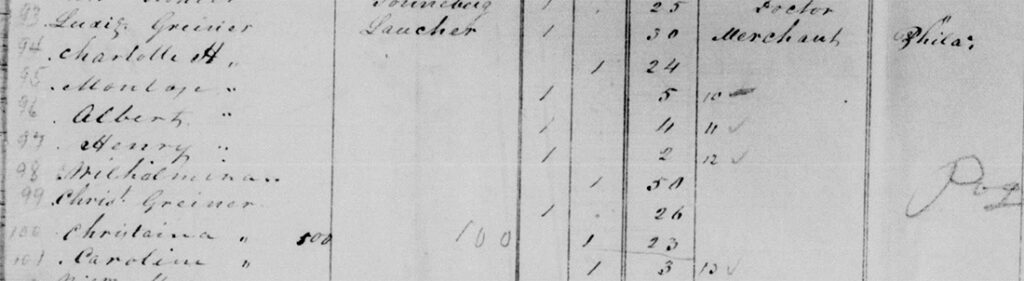 Sonneberg 1 25 Doctor
93 Ludig Greiner Laucher 1 30 Merchant Phila.
94 Charlotte H " 1 24
95 " 1 5 10
96 Albert " 1 4 11 ✓
97 Henry " 1 2 12 ✓
98 Wilhelmina " 1 50
99 Christ. Greiner 1 26
100 Christaina " 100 1 23
101 Caroline " 1 3 13 ✓